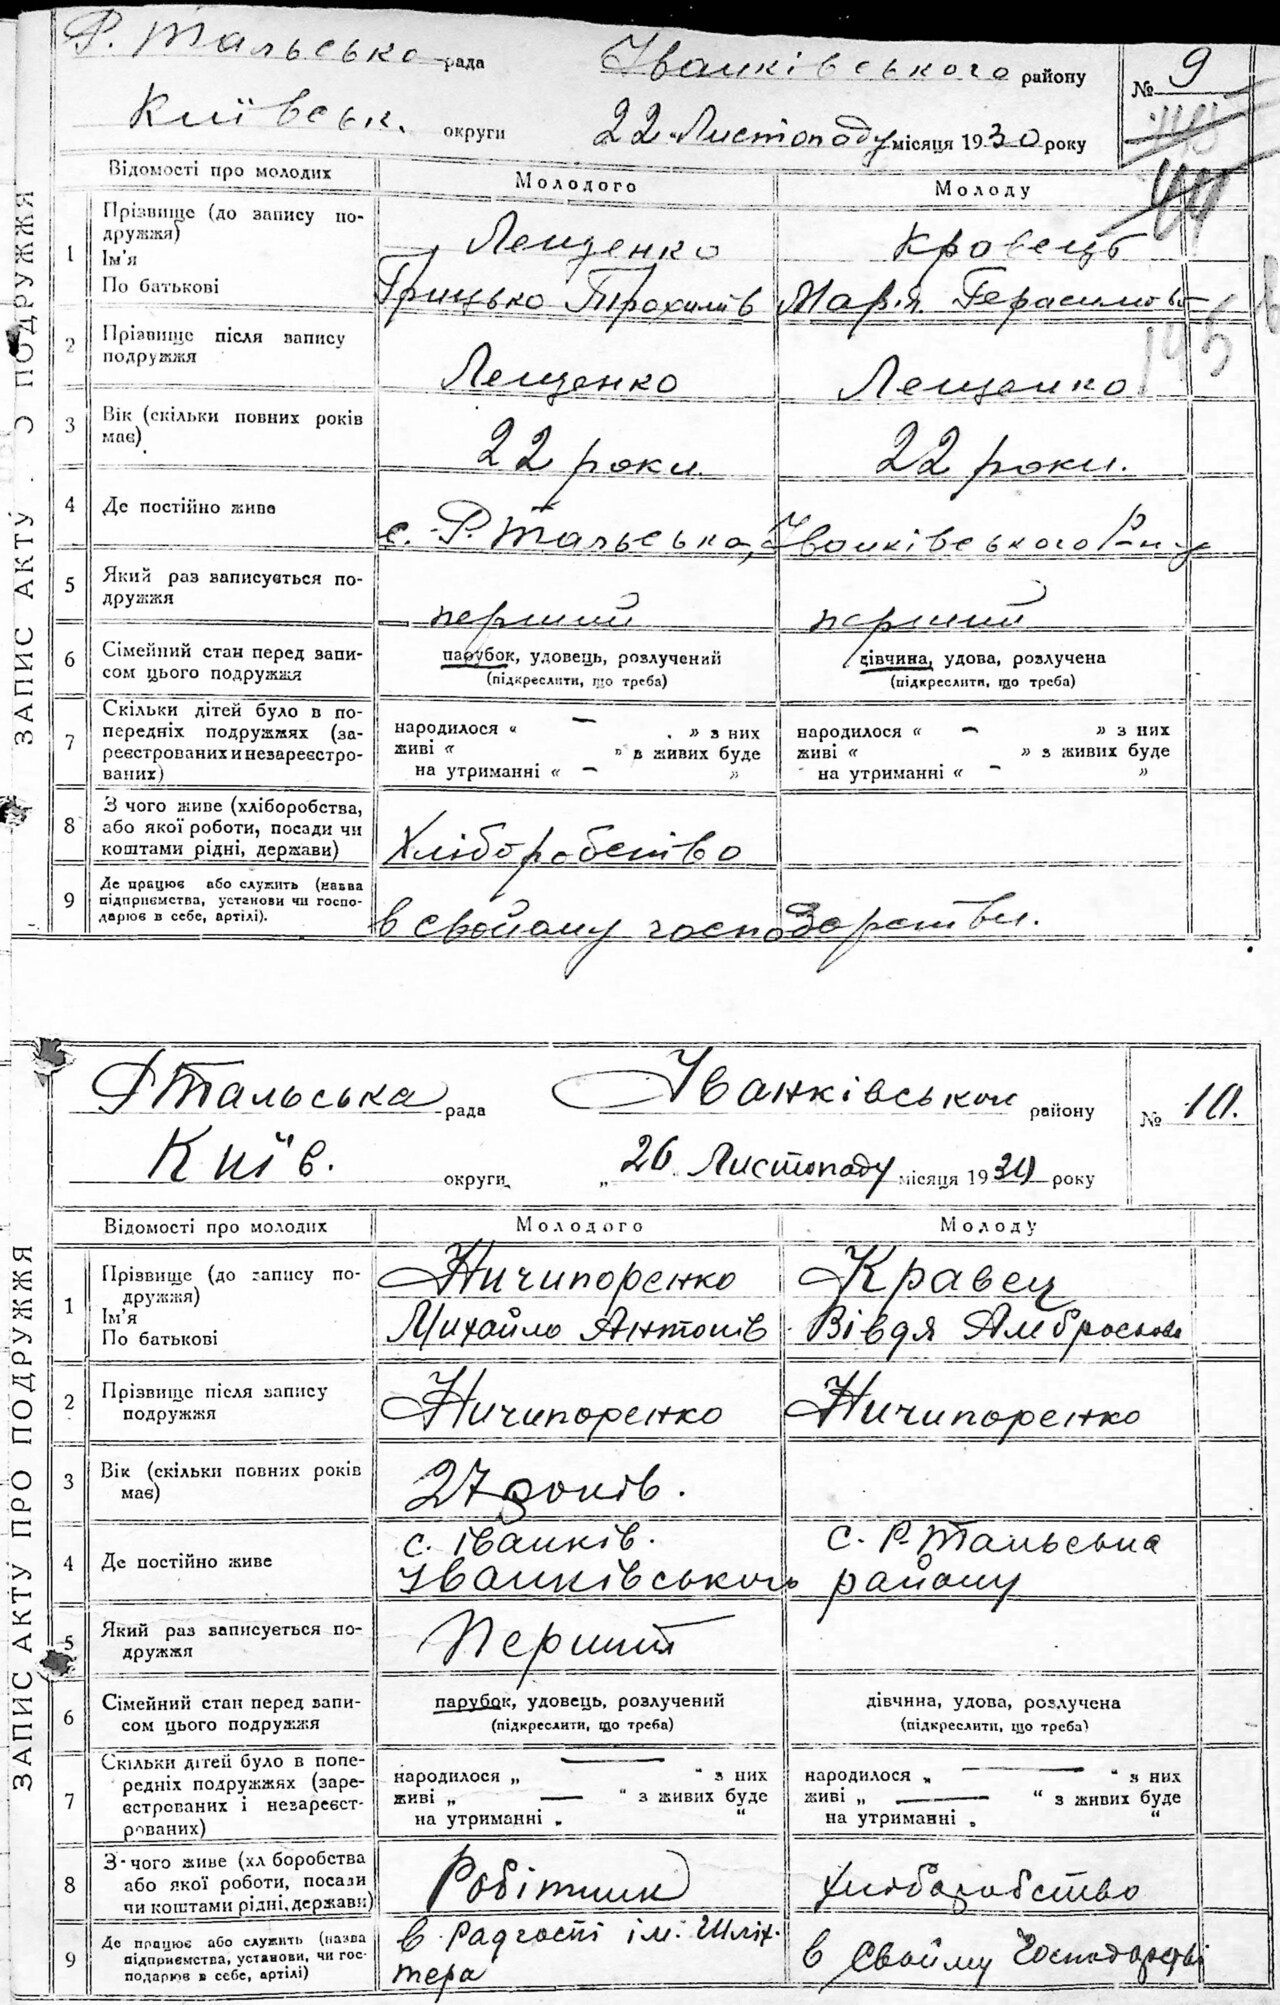 Р. Тальсько рада Іванківського району № 9
Київськ. округи 22 Листопаду місяця 1930 року
ЗАПИС АКТУ О ПОДРУЖЖЯ
Відомості про молодих Молодого Молоду
1 Прізвище (до запису по-
дружжя)
Ім'я
По батькові
Лещенко Кровець
Грицько Трохимів Марія Герасимов
145
2 Прізвище після запису
подружжя
Лещенко Лещенко
3 Вік (скільки повних років
має)
22 роки 22 роки.
4 Де постійно живе
с. Р. Тальсько, Іванківського Р-ну
5 Який раз записується по-
дружжя
перший перший
6 Сімейний стан перед запи-
сом цього подружжя
парубок, удовець, розлучений дівчина, удова, розлучена
(підкреслити, що треба) (підкреслити, що треба)
7 Скільки дітей було в по-
передніх подружжях (за-
реєстрованих и незареєстро-
ваних)
народилося « — » з них народилося « — » з них
живі « » в живих буде живі « » з живих буде
на утриманні « — » на утриманні « — »
8 З чого живе (хліборобства,
або якої роботи, посади чи
коштами рідні, держави)
Хліборобство
9 Де працює або служить (назва
підприємства, установи чи госпо-
дарює в себе, артілі).
в свойому господарстви.
Р Тальська рада Іванківського району № 10.
Київ. округи „ 26 Листопаду місяця 1930 року
ЗАПИС АКТУ ПРО ПОДРУЖЖЯ
Відомості про молодих Молодого Молоду
1 Прізвище (до запису по-
дружжя)
Ім'я
По батькові
Ничипоренко Кравец
Михайло Антонів Вівдя Амбросиова
2 Прізвище після запису
подружжя
Ничипоренко Ничипоренко
3 Вік (скільки повних років
має)
27 років.
4 Де постійно живе
с. Іванків. с. Р. Тальська
Іванківського району
5 Який раз записується по-
дружжя
Перший
6 Сімейний стан перед запи-
сом цього подружжя
парубок, удовець, розлучений дівчина, удова, розлучена
(підкреслити, що треба) (підкреслити, що треба)
7 Скільки дітей було в попе-
редніх подружжях (заре-
єстрованих і незареєст-
рованих)
народилося „ — “ з них народилося „ — “ з них
живі „ — “ з живих буде живі „ — “ з живих буде
на утриманні „ “ на утриманні „ “
8 З чого живе (хл боробства
або якої роботи, посади
чи коштами рідні, держави)
Робітник Хліборобство
9 Де працює або служить (назва
підприємства, установи, чи гос-
подарює в себе, артілі)
в Радгоспі ім. Шліх-
тера
в Свойму Господарстві